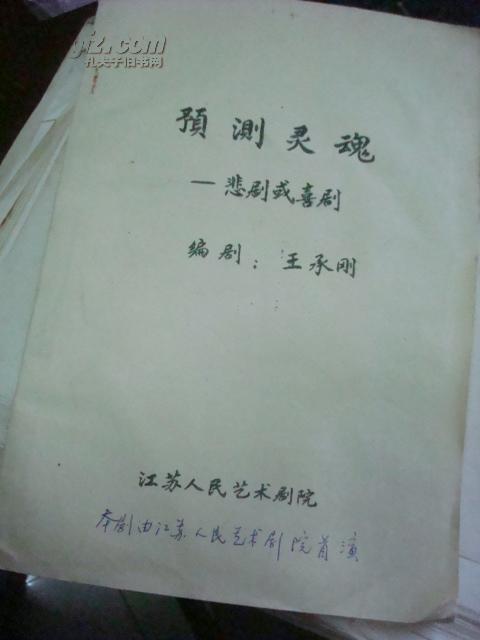 yiz.com
孔夫子旧书网
預测灵魂
—悲剧或喜剧
编剧：王承刚
江苏人民艺术剧院
本剧由江苏人民艺术剧院首演